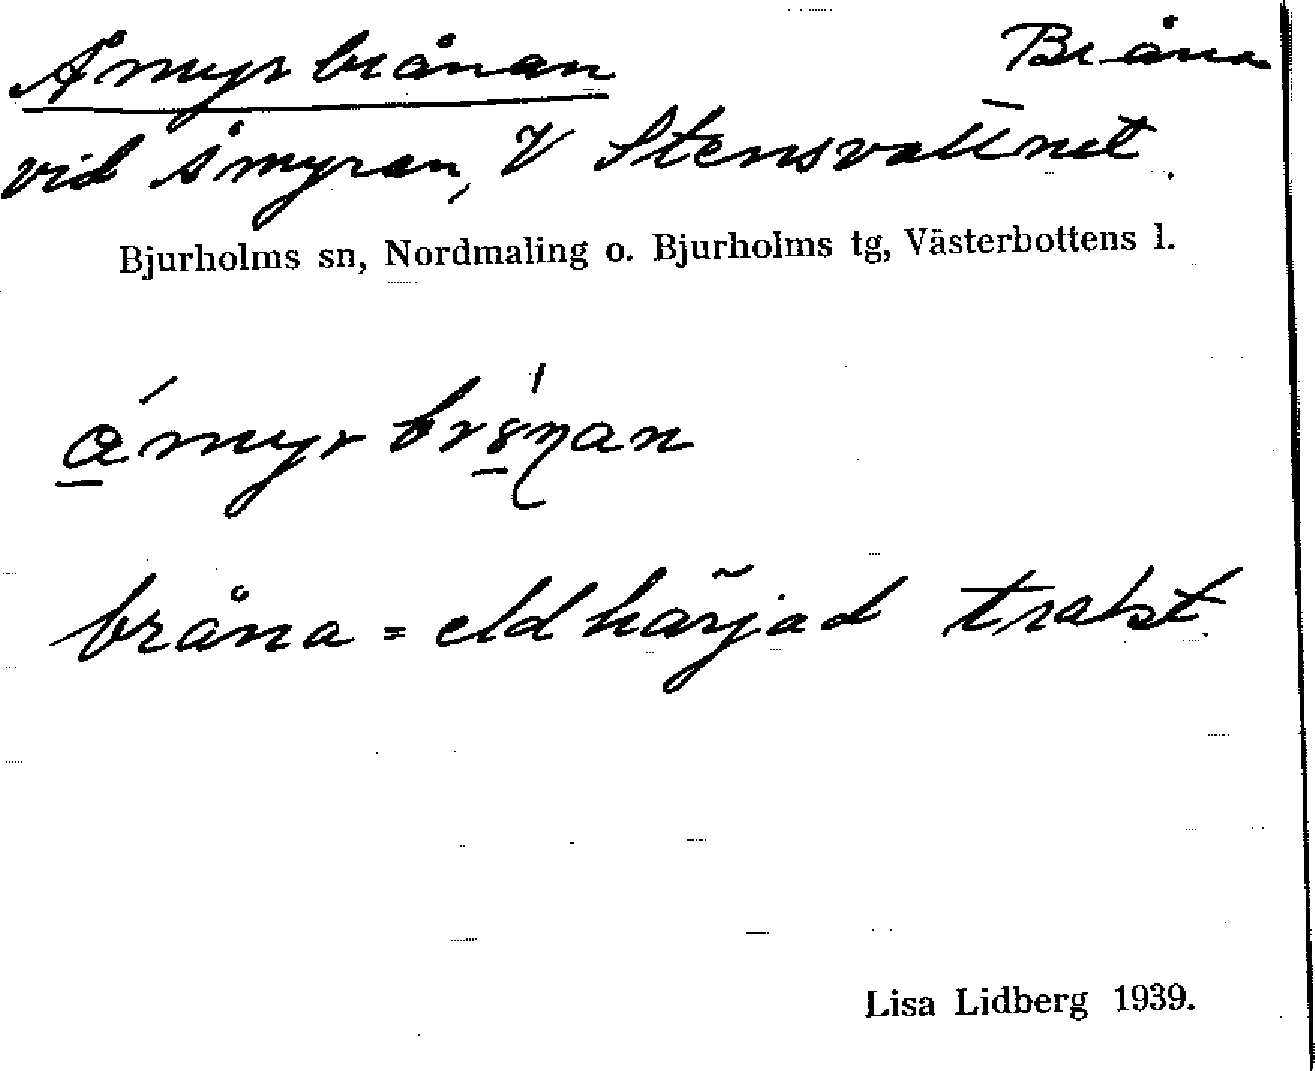 Åmyrbrånan Bråna
vid Åmyran, V Stensvattnet.
Bjurholms sn, Nordmaling o. Bjurholms tg, Västerbottens l.
bråna = eldhärjad trakt.
Lisa Lidberg 1939.